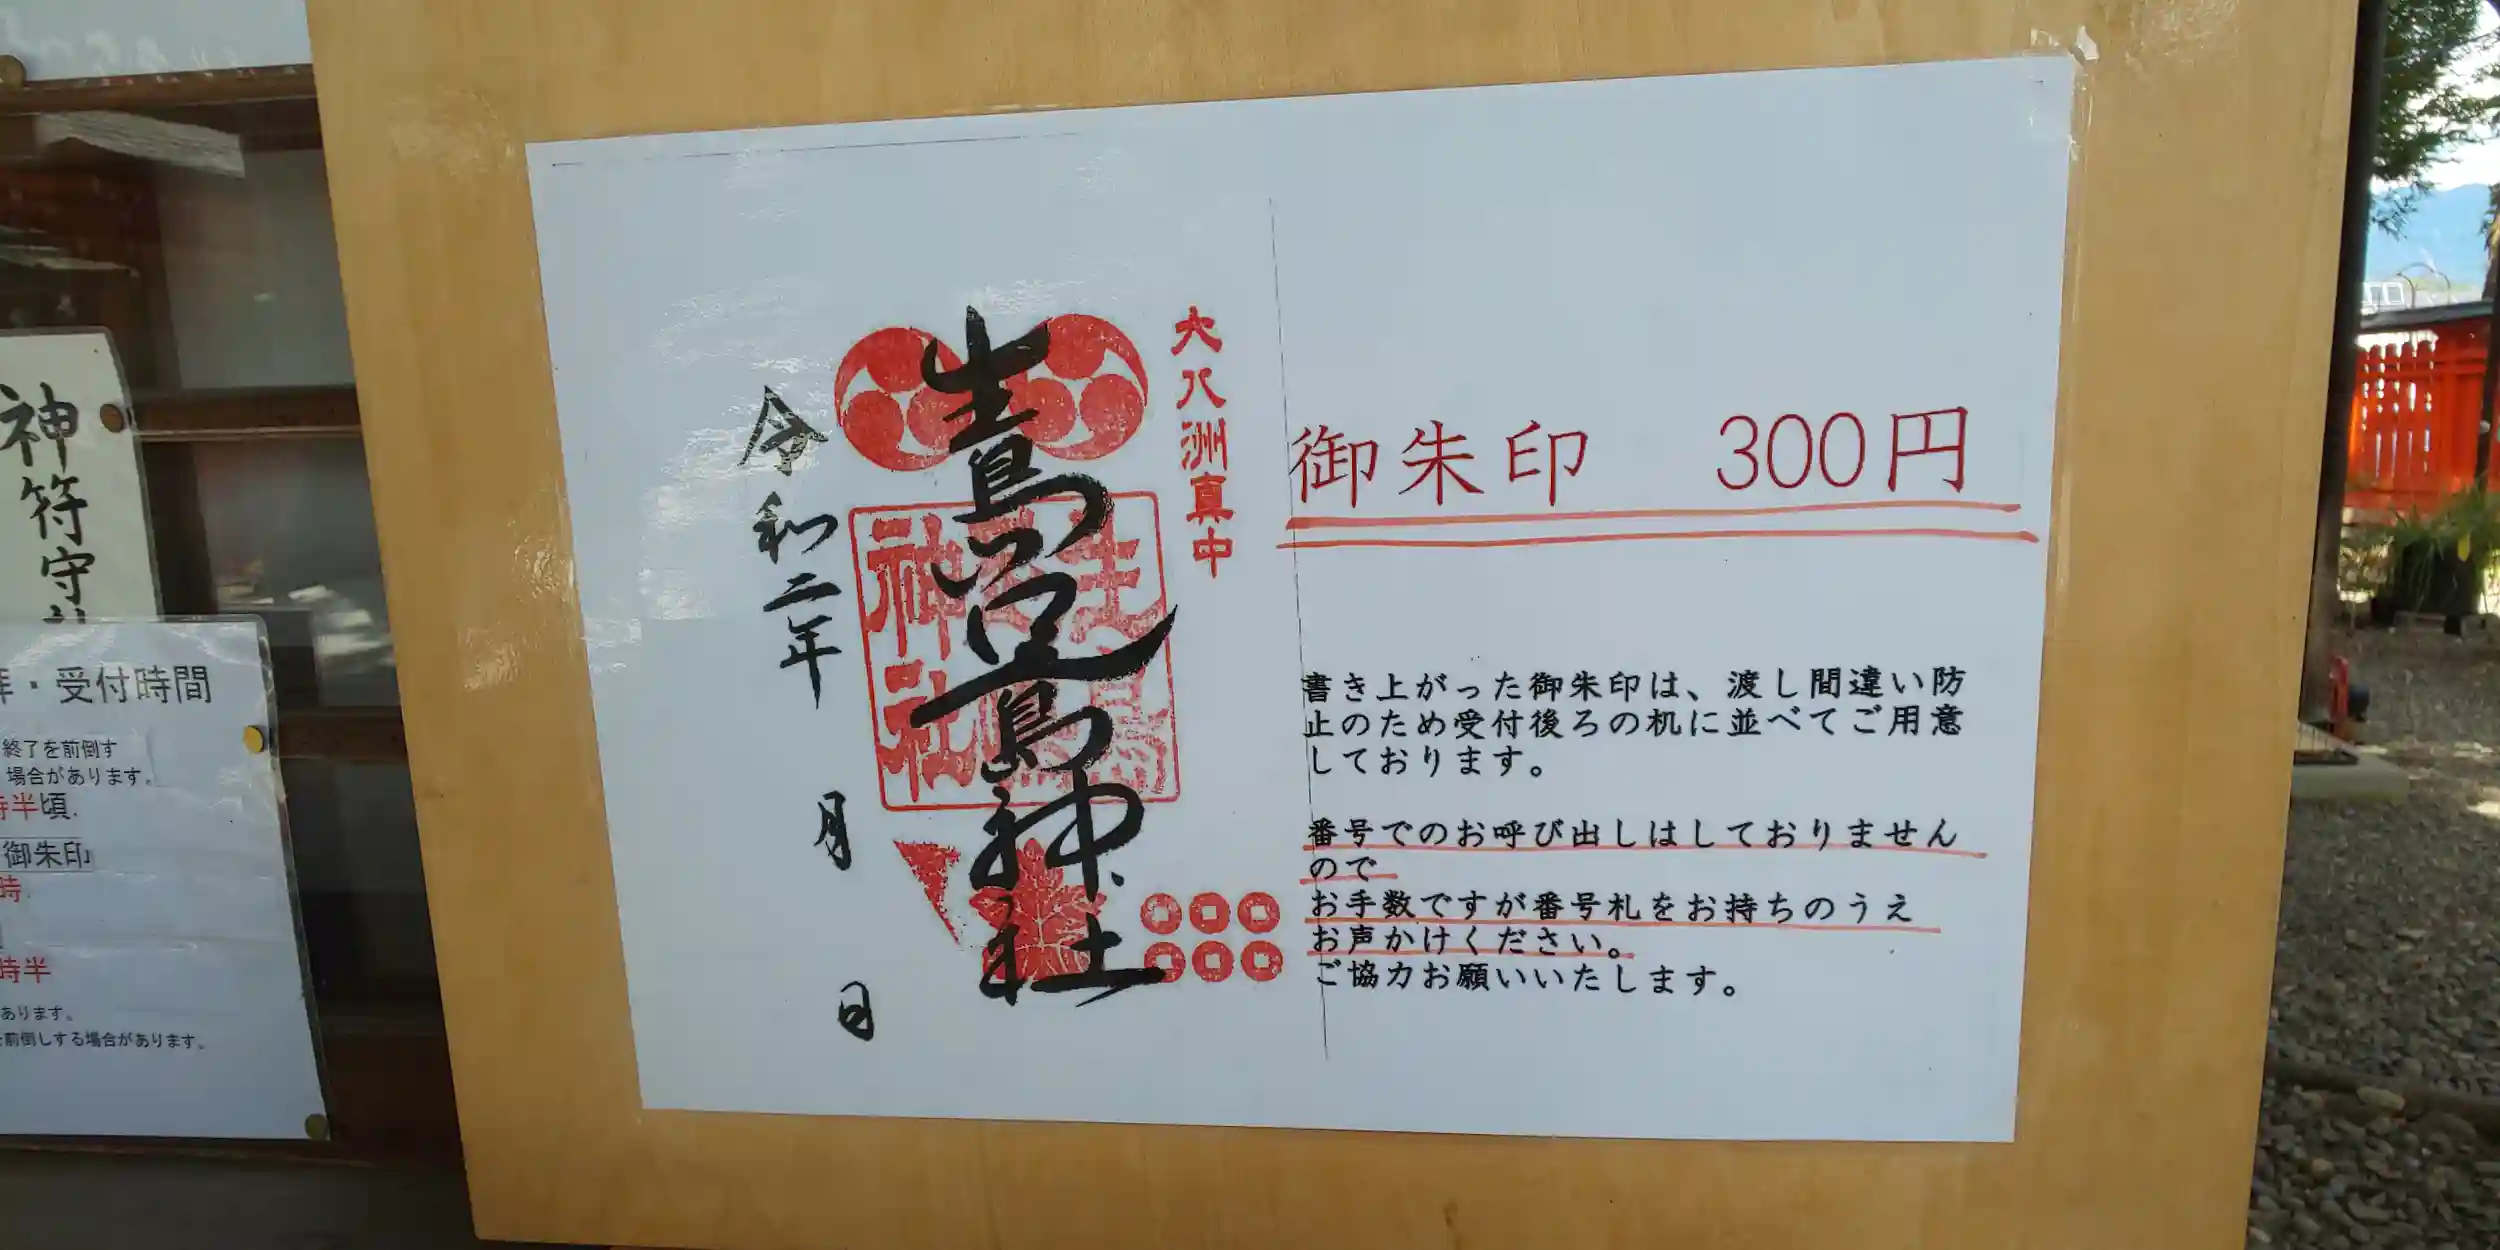 御朱印　300円
書き上がった御朱印は、渡し間違い防
止のため受付後ろの机に並べてご用意
しております。
番号でのお呼び出しはしておりません
ので
お手数ですが番号札をお持ちのうえ
お声かけください。
ご協力お願いいたします。
大八洲真中
生島足島神社
生島足島神社
令和二年　月　日
神符守
・受付時間
終了を前倒す
場合があります。
時半頃
御朱印
時
時半
あります。
前倒しする場合があります。